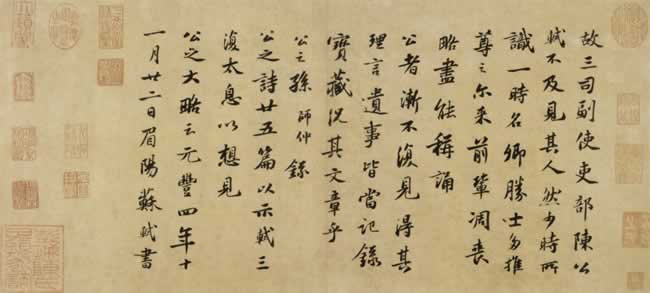 故三司副使吏部陳公
軾不及見其人然少時所
識一時名卿勝士多推
尊之尔来前輩凋喪
略盡能稱誦
公者漸不復見得其
理言遺事皆當記錄
寶藏况其文章乎
公之孫師仲錄
公之詩廿五篇以示軾三
復太息以想見
公之大略云元豐四年十
一月廿二日眉陽蘇軾書